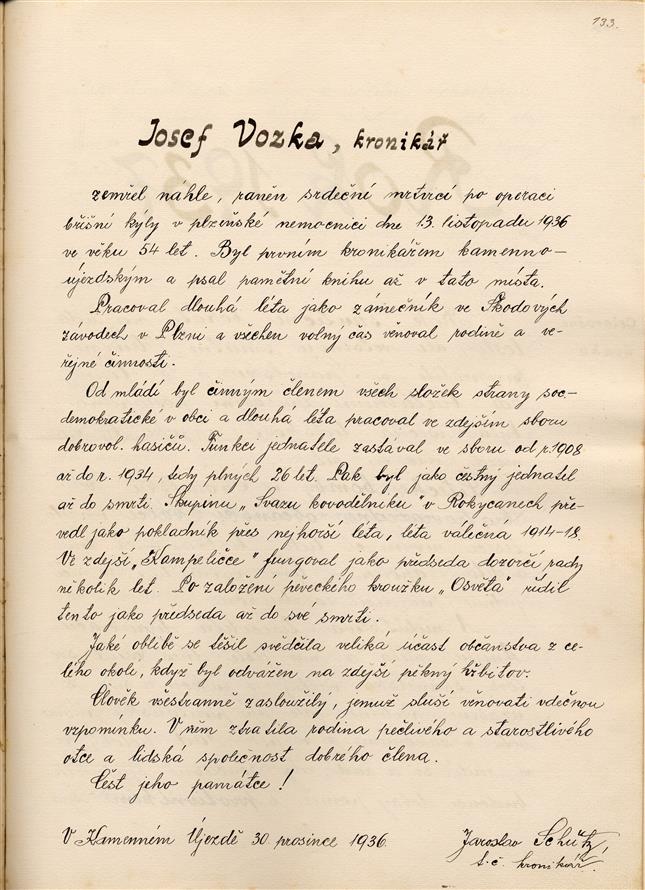 133.
Josef Vozka, kronikář
zemřel náhle, raněn srdeční mrtvicí po operaci
břišní kýly v plzeňské nemocnici dne 13. listopadu 1936
ve věku 54 let. Byl prvním kronikářem kamenno-
újezdským a psal pamětní knihu až v tato místa.
Pracoval dlouhá léta jako zámečník ve Škodových
závodech v Plzni a všechen volný čas věnoval rodině a ve-
řejné činnosti.
Od mládí byl činným členem všech složek strany soc-
demokratické v obci a dlouhá léta pracoval ve zdejším sboru
dobrovol. hasičů. Funkci jednatele zastával ve sboru od r. 1908
až do r. 1934, tedy plných 26 let. Pak byl jako čestný jednatel
až do smrti. Skupinu „Svazu kovodělníku" v Rokycanech pře-
vedl jako pokladník přes nejhorší léta, léta válečná 1914-18.
Ve zdejší „Kampeličce" fungoval jako předseda dozorčí rady
několik let. Po založení pěveckého kroužku „Osvěta" řídil
tento jako předseda až do své smrti.
Jaké oblibě se těšil svědčila veliká účast občanstva z ce-
lého okolí, když byl odvážen na zdejší pěkný hřbitov.
Člověk všestranně zasloužilý, jemuž sluší věnovati vděčnou
vzpomínku. V něm ztratila rodina pečlivého a starostlivého
otce a lidská společnost dobrého člena.
Čest jeho památce!
V Kamenném Újezdě 30. prosince 1936.
Jaroslav Schütz,
t.č. kronikář.